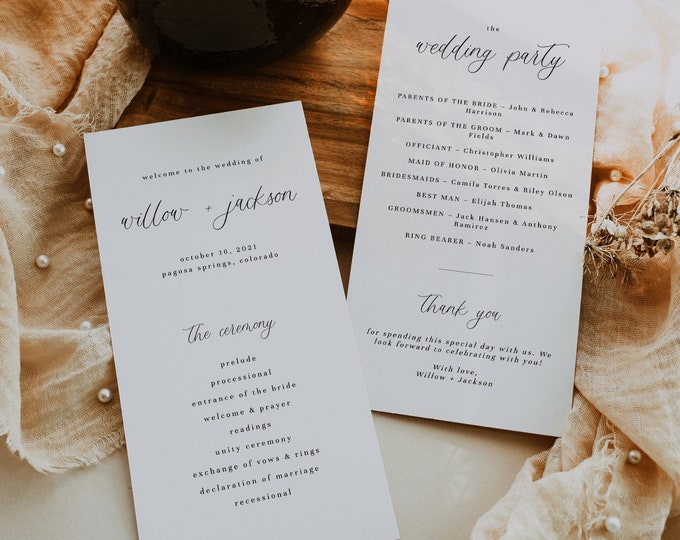 welcome to the wedding of
willow + jackson
october 16, 2021
pagosa springs, colorado
The ceremony
prelude
processional
entrance of the bride
welcome & prayer
readings
unity ceremony
exchange of vows & rings
declaration of marriage
recessional
the
wedding party
PARENTS OF THE BRIDE – John & Rebecca
Harrison
PARENTS OF THE GROOM – Mark & Dawn
Fields
OFFICIANT – Christopher Williams
MAID OF HONOR – Olivia Martin
BRIDESMAIDS – Camila Torres & Riley Olson
BEST MAN – Elijah Thomas
GROOMSMEN – Jack Hansen & Anthony
Ramirez
RING BEARER – Noah Sanders
Thank you
for spending this special day with us. We
look forward to celebrating with you!
With love,
Willow + Jackson